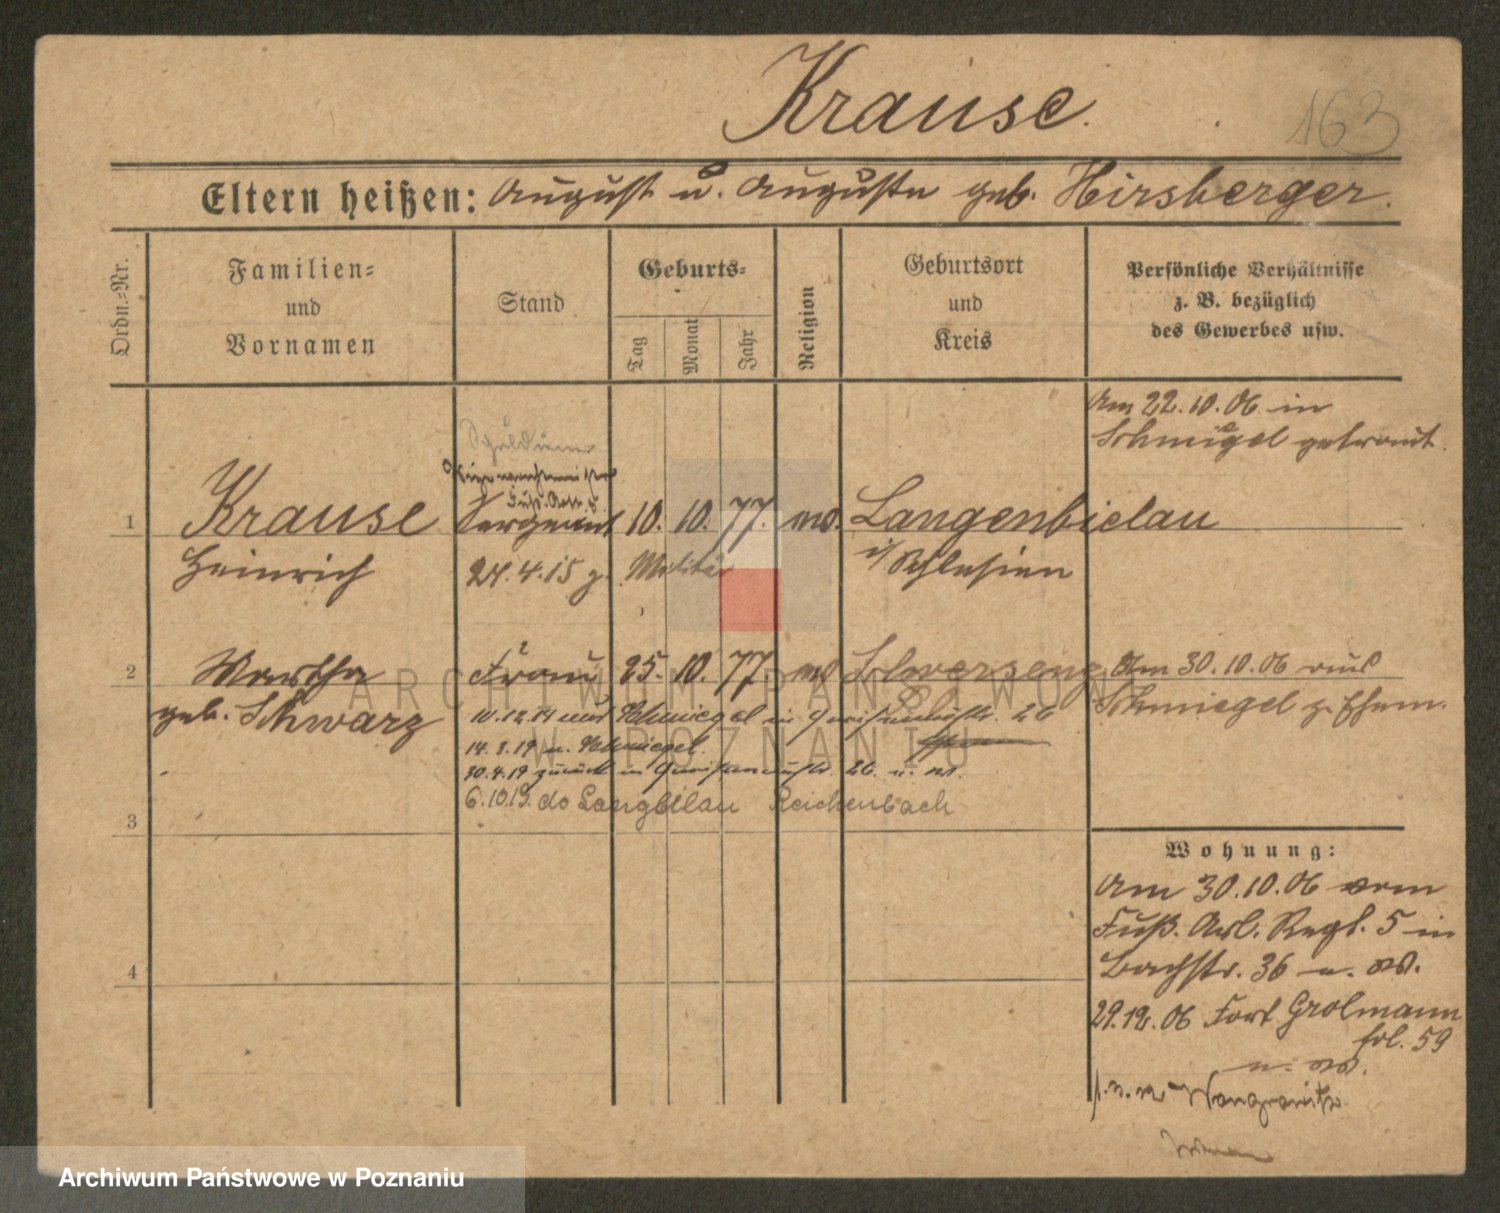 Krause.
163
Eltern heißen: August u. Auguste geb. Hirsberger.
Ordn.-Nr.
Familien-
und
Vornamen
Stand
Geburts-
Tag
Monat
Jahr
Religion
Geburtsort
und
Kreis
Persönliche Verhältnisse
z. B. bezüglich
des Gewerbes usw.
Am 22.10.06 in
Schmiegel getraut.
1
Krause
Heinrich
Sergeant
10. 10. 77.
Langenbielau
i/Schlesien
24.4.15 z. Militär
2
Martha
geb. Schwarz
Frau
25. 10. 77.
Schwersenz
Am 30.10.06 aus
Schmiegel z. Ehem.
10.12.14 aus Schmiegel in Gneisenaustr. 26
14.3.19 n. Schmiegel.
30.4.19 zurück in Gneisenaustr. 26.
6.10.19. do Langbilau Reichenbach
3
4
Wohnung:
Am 30.10.06 vom
Fuß. Art. Regt. 5 in
Bachstr. 36
29.12.06 Fort Grolmann
fol. 59
ARCHIWUM PAŃSTWOWE
W POZNANIU
Archiwum Państwowe w Poznaniu